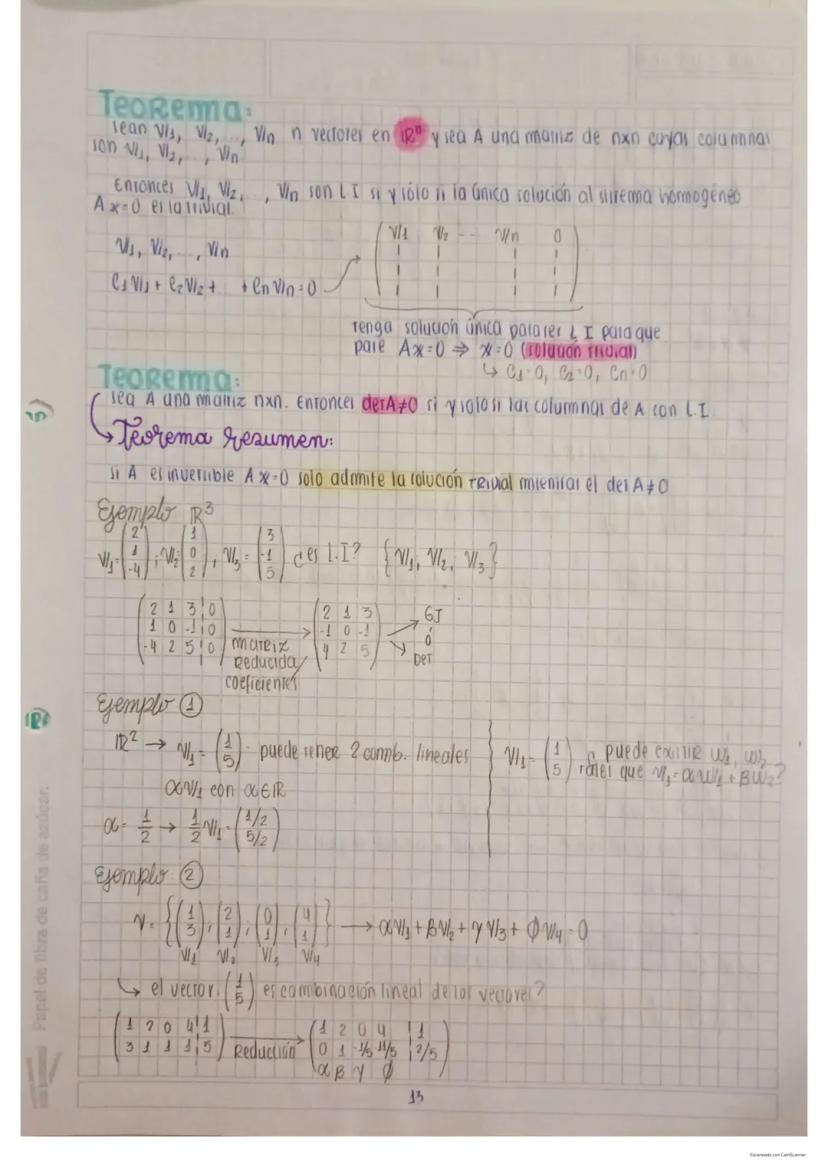 Teorema:
Sean V1, V2, ..., Vn n vectores en ℝⁿ y sea A una matriz de nxn cuyas columnas
son V1, V2, ..., Vn
Entonces V1, V2, ..., Vn son L I si y sólo si la única solución al sistema homogéneo
Ax=0 es la trivial.
V1, V2, ..., Vn
C1V1 + C2V2 + + CnVn = 0
V1 V2 -- Vn 0
tenga solución única para ser L I para que
pare Ax=0 ⇒ x=0 (solución trivial)
↳ C1=0, C2=0, Cn=0
Teorema:
sea A una matriz nxn. Entonces det A≠0 si y solo si las columnas de A son L.I
↳ Teorema resumen:
si A es invertible Ax=0 solo admite la solución TRIVIAL mientras el det A≠0
Ejemplo ℝ³
V1=(2 1 -4), V2=(1 0 2), V3=(3 -1 5) ¿es L.I? {V1, V2, V3}
2 1 3 | 0
1 0 -1 | 0
-4 2 5 | 0
matriz
Reducida/
coeficientes
2 1 3
-1 0 -1
4 2 5
GJ
ó
Det
Ejemplo ①
ℝ² → V1=(1 5) puede tener 2 comb. lineales
αV1 con α∈ℝ
α= 1/2 → 1/2 V1=(1/2 5/2)
V1=(1 5) ¿ puede existir W1, W2
tales que V1=αW1+βW2?
Ejemplo ②
V={(1 3), (2 1), (0 1), (4 1)} → αV1+βV2+γV3+ØV4=0
V1 V2 V3 V4
↳ el vector (1 5) es combinación lineal de los vectores?
1 2 0 4 | 1
3 1 1 1 | 5
Reducción
1 2 0 4 | 1
0 1 -1/5 11/5 | 2/5
α β γ Ø
13
Panel de fibra de caña de azúcar.
Escaneado con CamScanner